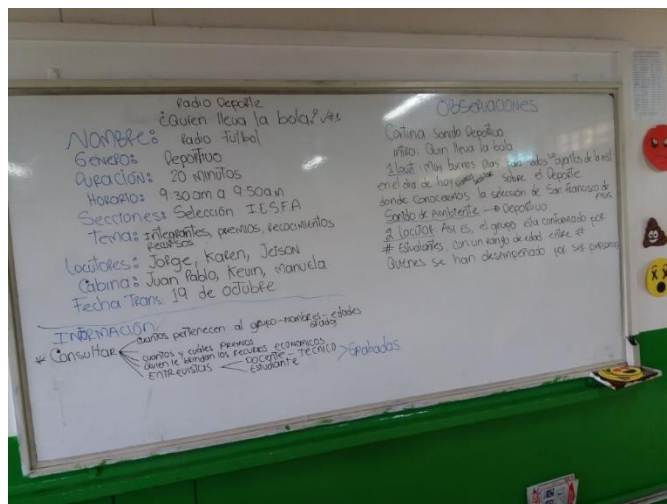 Radio Deporte
¿Quien lleva la bola?
NOMBRE: Radio Futbol
GENERO: Deportivo
DURACIÓN: 20 minutos
HORARIO: 9:30am a 9:50am
Secciones: Selección I.E.S.F.A
Tema: Integrantes, premios, recocimientos
recursos
Locutores: Jorge, Karen, Jeison
Cabina: Juan Pablo, Kevin, manuela
Fecha Trans: 19 de octubre
INFORMACIÓN
* Consultar
cuantos pertenecen al grupo - nombres - edades
grados
cuantos y cuáles premios
quien le brindan los recursos económicos
ENTREVISTAS
DOCENTE - TECNICO
Estudiante
> Grabadas
OBSERVACIONES
Cortina sonido Deportivo
Intro: Quin lleva la bola
1 Locut: Muy buenos días para todos oyentes de la
en el día de hoy sobre el Deporte
donde Conoceremos la selección de San Francisco de
Sonido de Ambiente → Deportivo
2 Locutor: Así es, el grupo esta conformado por
# Estudiantes, con un rango de edad entre #
Quienes se han desempeñado por ser